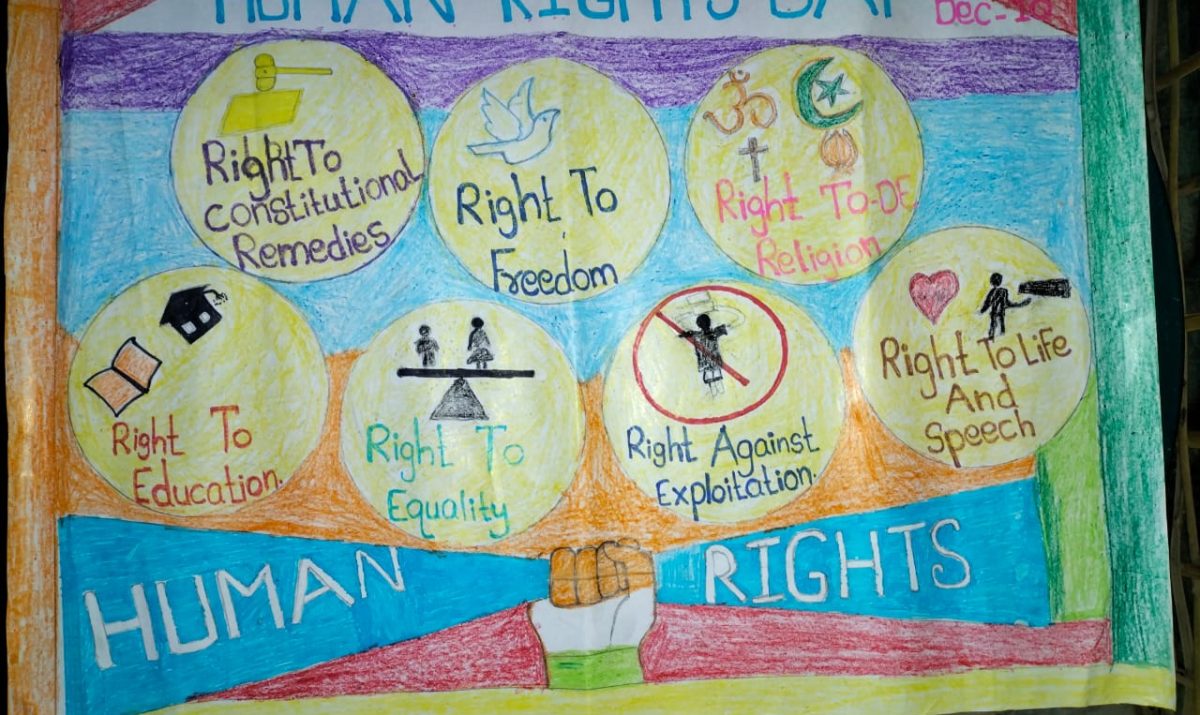 HUMAN RIGHTS DAY
Dec-10
Right To
Constitutional
Remedies
Right To
Freedom
Right To-DE
Religion
Right To
Education.
Right To
Equality
Right Against
Exploitation.
Right To Life
And
Speech
HUMAN RIGHTS